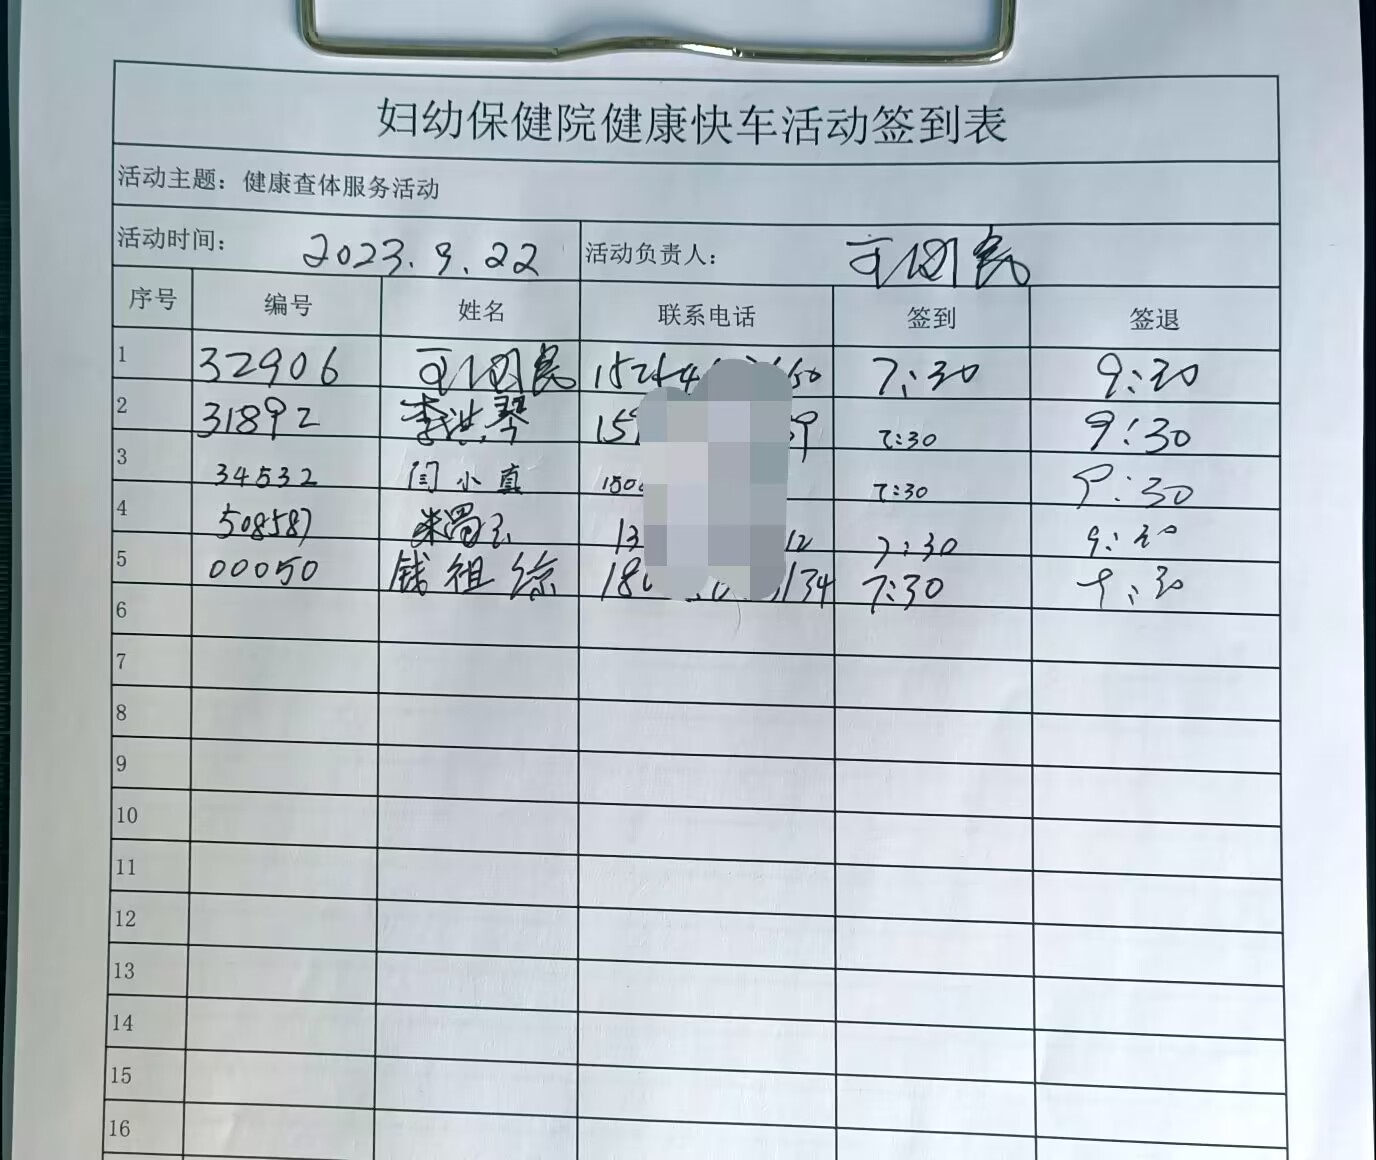 妇幼保健院健康快车活动签到表
活动主题：健康查体服务活动
活动时间： 2023.9.22 活动负责人：
序号 编号 姓名 联系电话 签到 签退
1 32906 7:30 9:30
2 31892 李洪琴 7:30 9:30
3 34532 闫小真 7:30 9:30
4 508587 7:30 9:30
5 00050 钱祖综 7:30 9:30
6
7
8
9
10
11
12
13
14
15
16